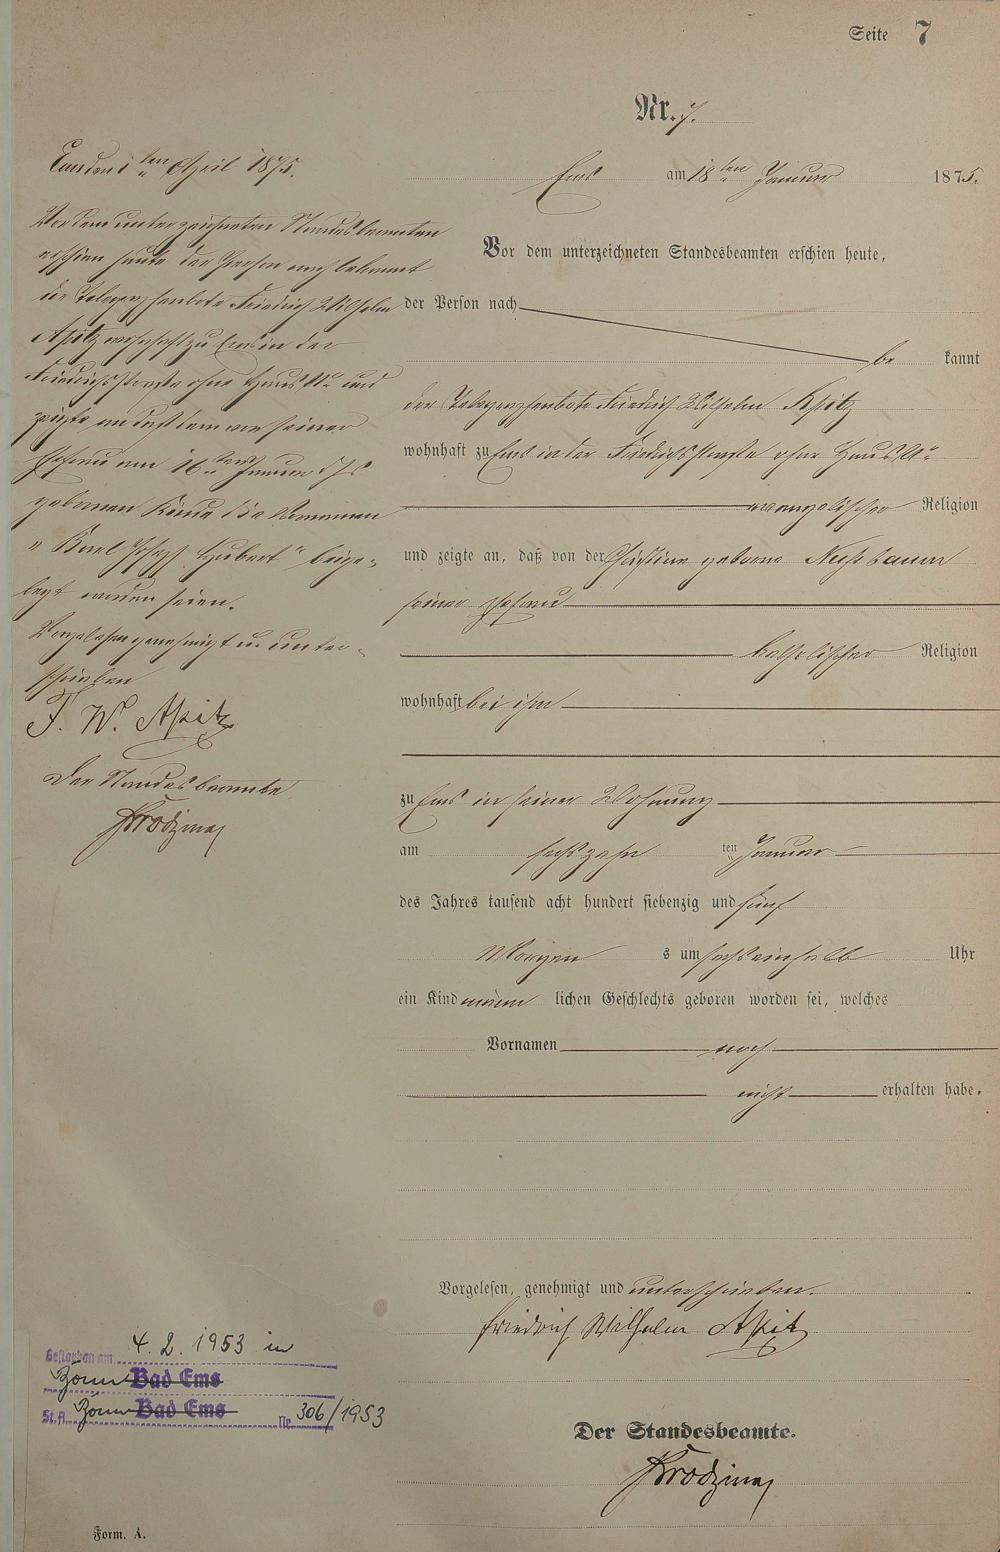 Seite 7
Nr. 7.
Ems am 18ten Januar 1875.
Vor dem unterzeichneten Standesbeamten erschien heute,
der Person nach
be kannt
der Telegraphenbote Friedrich Wilhelm Apitz
wohnhaft zu Ems in der Friedrichsstraße ohne Haus No
evangelischer Religion
und zeigte an, daß von der Christine geborne Nußbaum
seiner Ehefrau
katholischer Religion
wohnhaft bei ihm
zu Ems in seiner Wohnung
am sechszehn ten Januar
des Jahres tausend acht hundert siebenzig und fünf
Morgen s um sechseinhalb Uhr
ein Kind männ lichen Geschlechts geboren worden sei, welches
Vornamen noch
nicht erhalten habe.
Vorgelesen, genehmigt und unterschrieben.
Friedrich Wilhelm Apitz
Der Standesbeamte.
Ems den 1ten April 1875.
Vor dem unterzeichneten Standesbeamten
erschien heute der Person nach bekannt
der Telegraphenbote Friedrich Wilhelm
Apitz wohnhaft zu Ems in der
Friedrichsstraße ohne Haus No und
zeigte an daß dem von seiner
Ehefrau am 16ten Januar d Js
geborenen Kinde die Vornamen
"Karl Joseph Hubert" beige-
legt worden seien.
Vorgelesen genehmigt u. unter-
schrieben
F. W. Apitz
Der Standesbeamte
Gestorben am 4.2.1953 in
Bonn Bad Ems
St.A. Bonn Bad Ems Nr. 306/1953
Form. A.